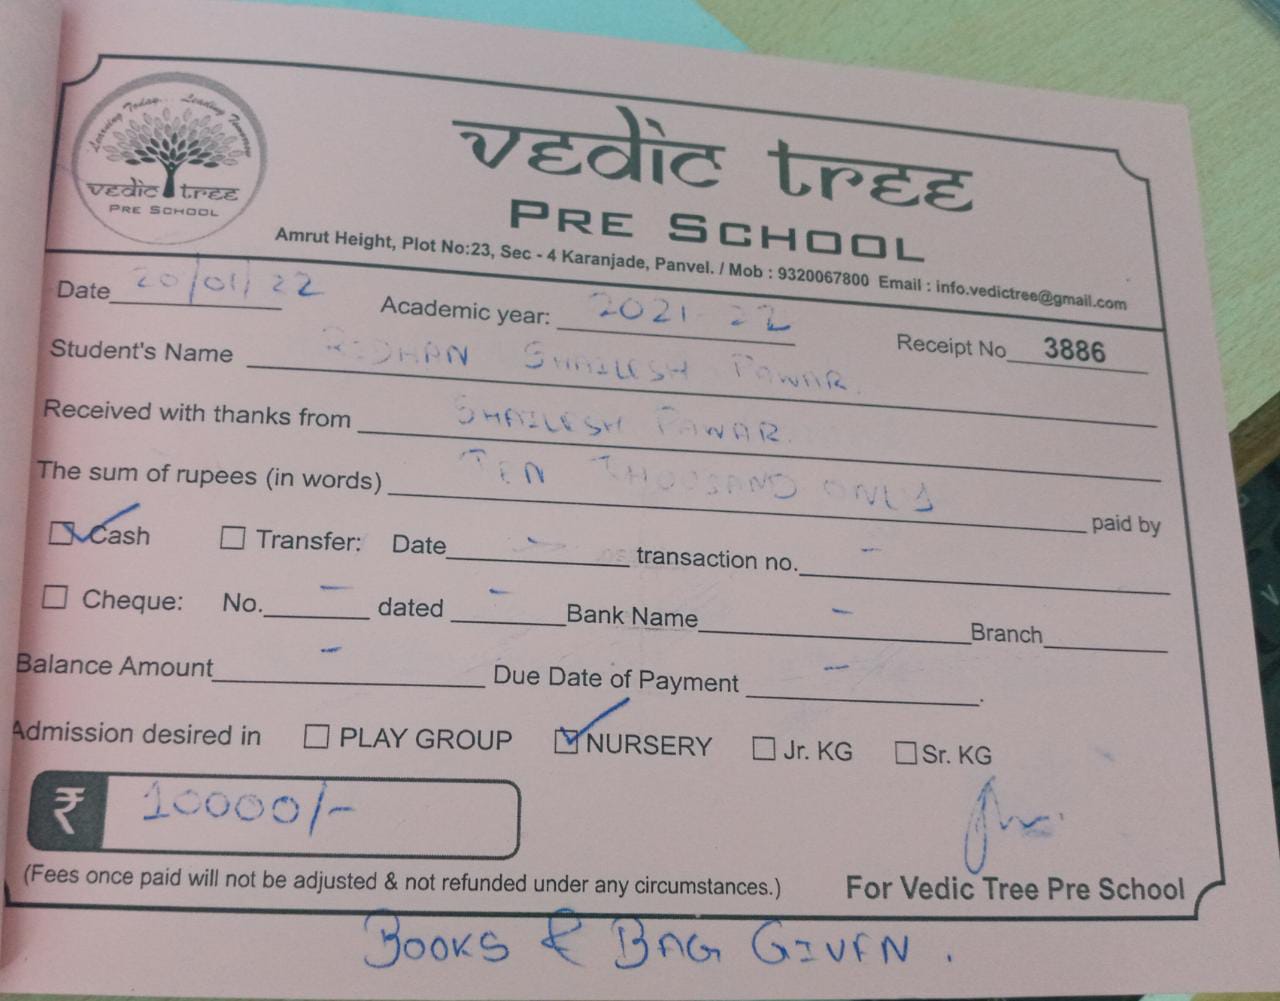 Learning Today... Leading Tomorrow
vedic tree
PRE SCHOOL
vedic tree
PRE SCHOOL
Amrut Height, Plot No:23, Sec - 4 Karanjade, Panvel. / Mob : 9320067800 Email : info.vedictree@gmail.com
Date 20/01/22 Academic year: 2021-22 Receipt No 3886
Student's Name SHAILESH PAWAR
Received with thanks from SHAILESH PAWAR
The sum of rupees (in words) TEN THOUSAND ONLY paid by
Cash Transfer: Date - transaction no. -
Cheque: No. - dated - Bank Name - Branch
Balance Amount - Due Date of Payment -
Admission desired in PLAY GROUP NURSERY Jr. KG Sr. KG
₹ 10000/-
(Fees once paid will not be adjusted & not refunded under any circumstances.) For Vedic Tree Pre School
BOOKS & BAG GIVEN.